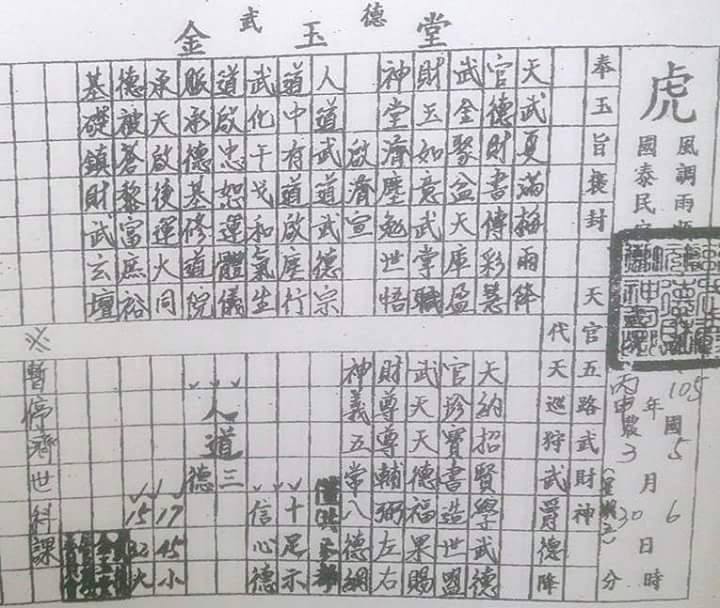 武德
金玉堂
虎
風調雨
國泰民
105國5月6日時
丙申年農3月30日分
奉玉旨褒封
天官五路武財神
代天巡狩武爵德降
天武夏滿梅雨降
官德財書傳彩慧
武金聚盆天庫盈
財玉如意武掌職
神堂濟塵勉世悟
啟濟宣
人道武道武德宗
道中有道啟塵行
武化干戈和氣生
道啟忠恕運體儀
脈承德基修道院
承天啟後運大同
德被蒼黎富庶裕
基礎鎮財武玄壇
天納招賢學武德
官珍寶書造世盟
武天天德福果賜
財尊尊輔弼左右
神義五常八德綱
十足示
信心德
人道
三德
17 45 小
15 32 火
※暫停濟世科課